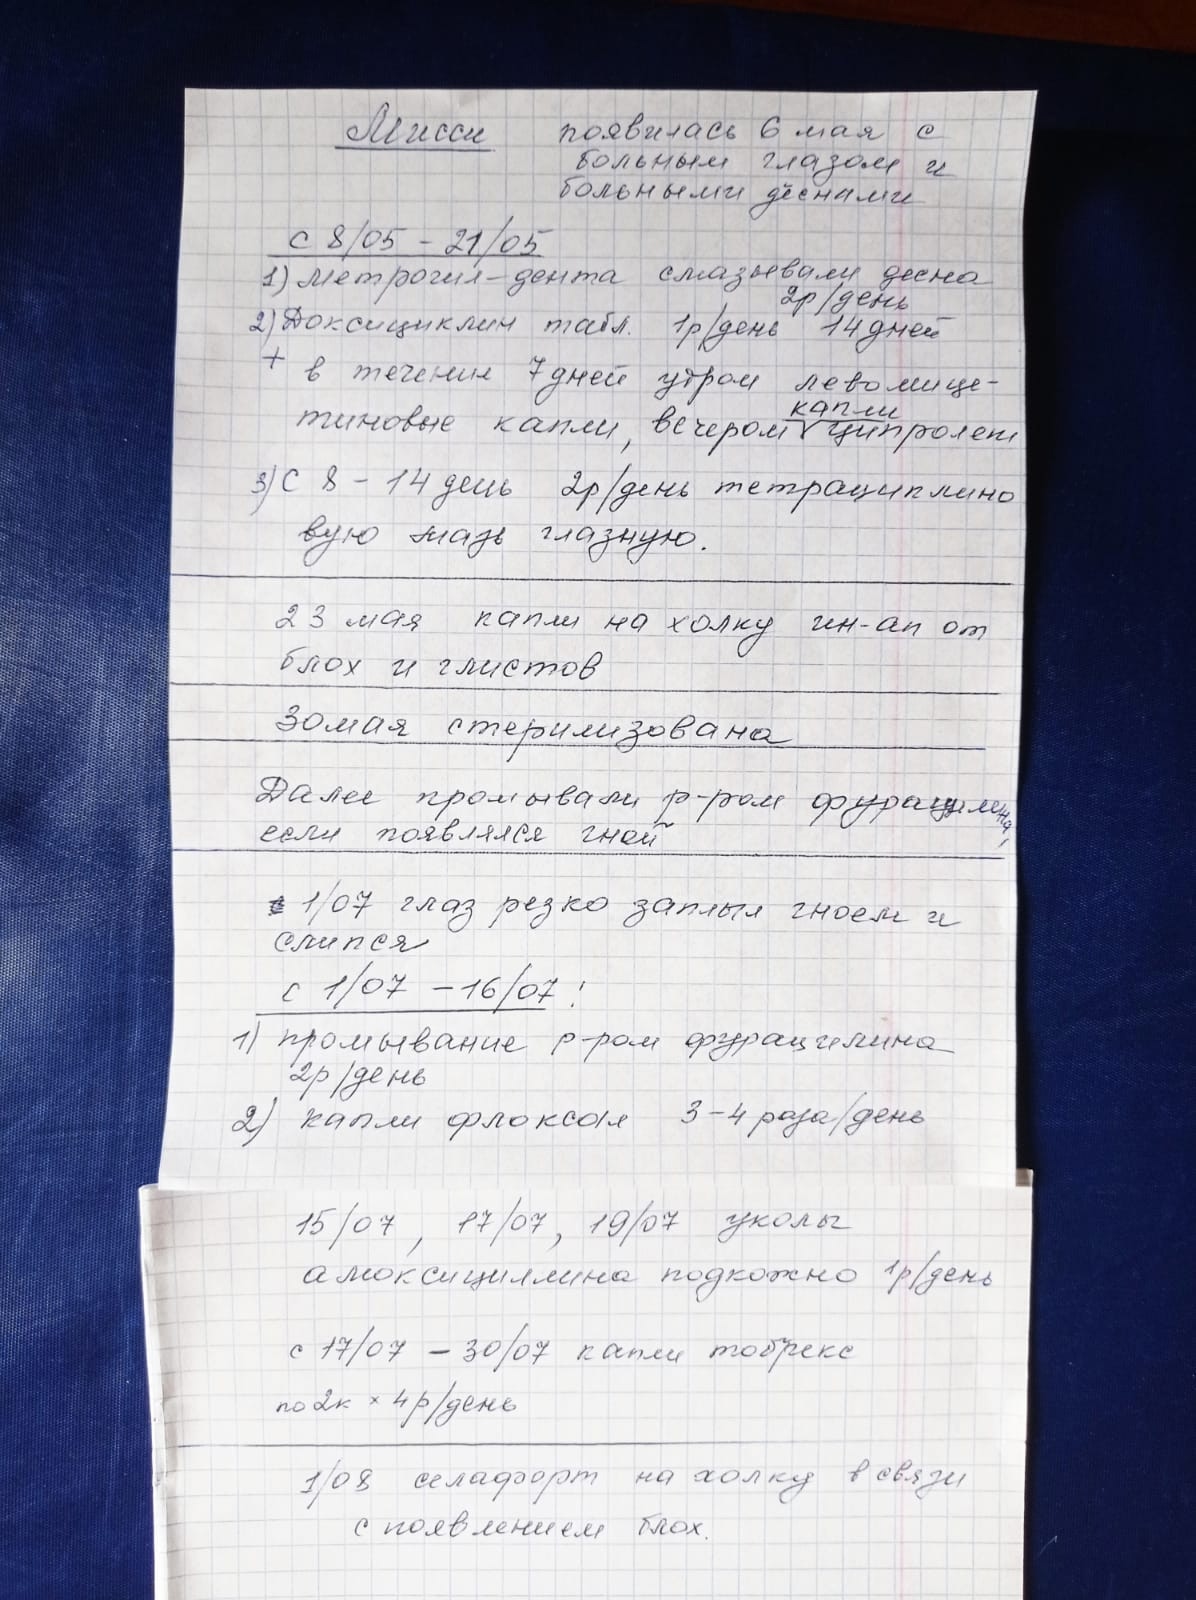 Мисси появилась 6 мая с
больным глазом и
больными дёснами
с 8/05 – 21/05
1) Метрогил-дента смазывали десна
2р/день
2) Доксициклин табл. 1р/день 14 дней
+ в течении 7 дней утром левомице-
капли
тиновые капли, вечером V ципролет
3) С 8 – 14 день 2р/день тетрациклино
вую мазь глазную.
23 мая капли на холку ин-ап от
блох и глистов
30 мая стерилизована
Далее промывали р-ром фурацилина,
если появлялся гной
1/07 глаз резко заплыл гноем и
слипся
с 1/07 – 16/07:
1) промывание р-ром фурацилина
2р/день
2) капли флоксал 3–4 раза/день
15/07, 17/07, 19/07 уколы
амоксициллина подкожно 1р/день
с 17/07 – 30/07 капли тобрекс
по 2к × 4р/день
1/08 селафорт на холку в связи
с появлением блох.